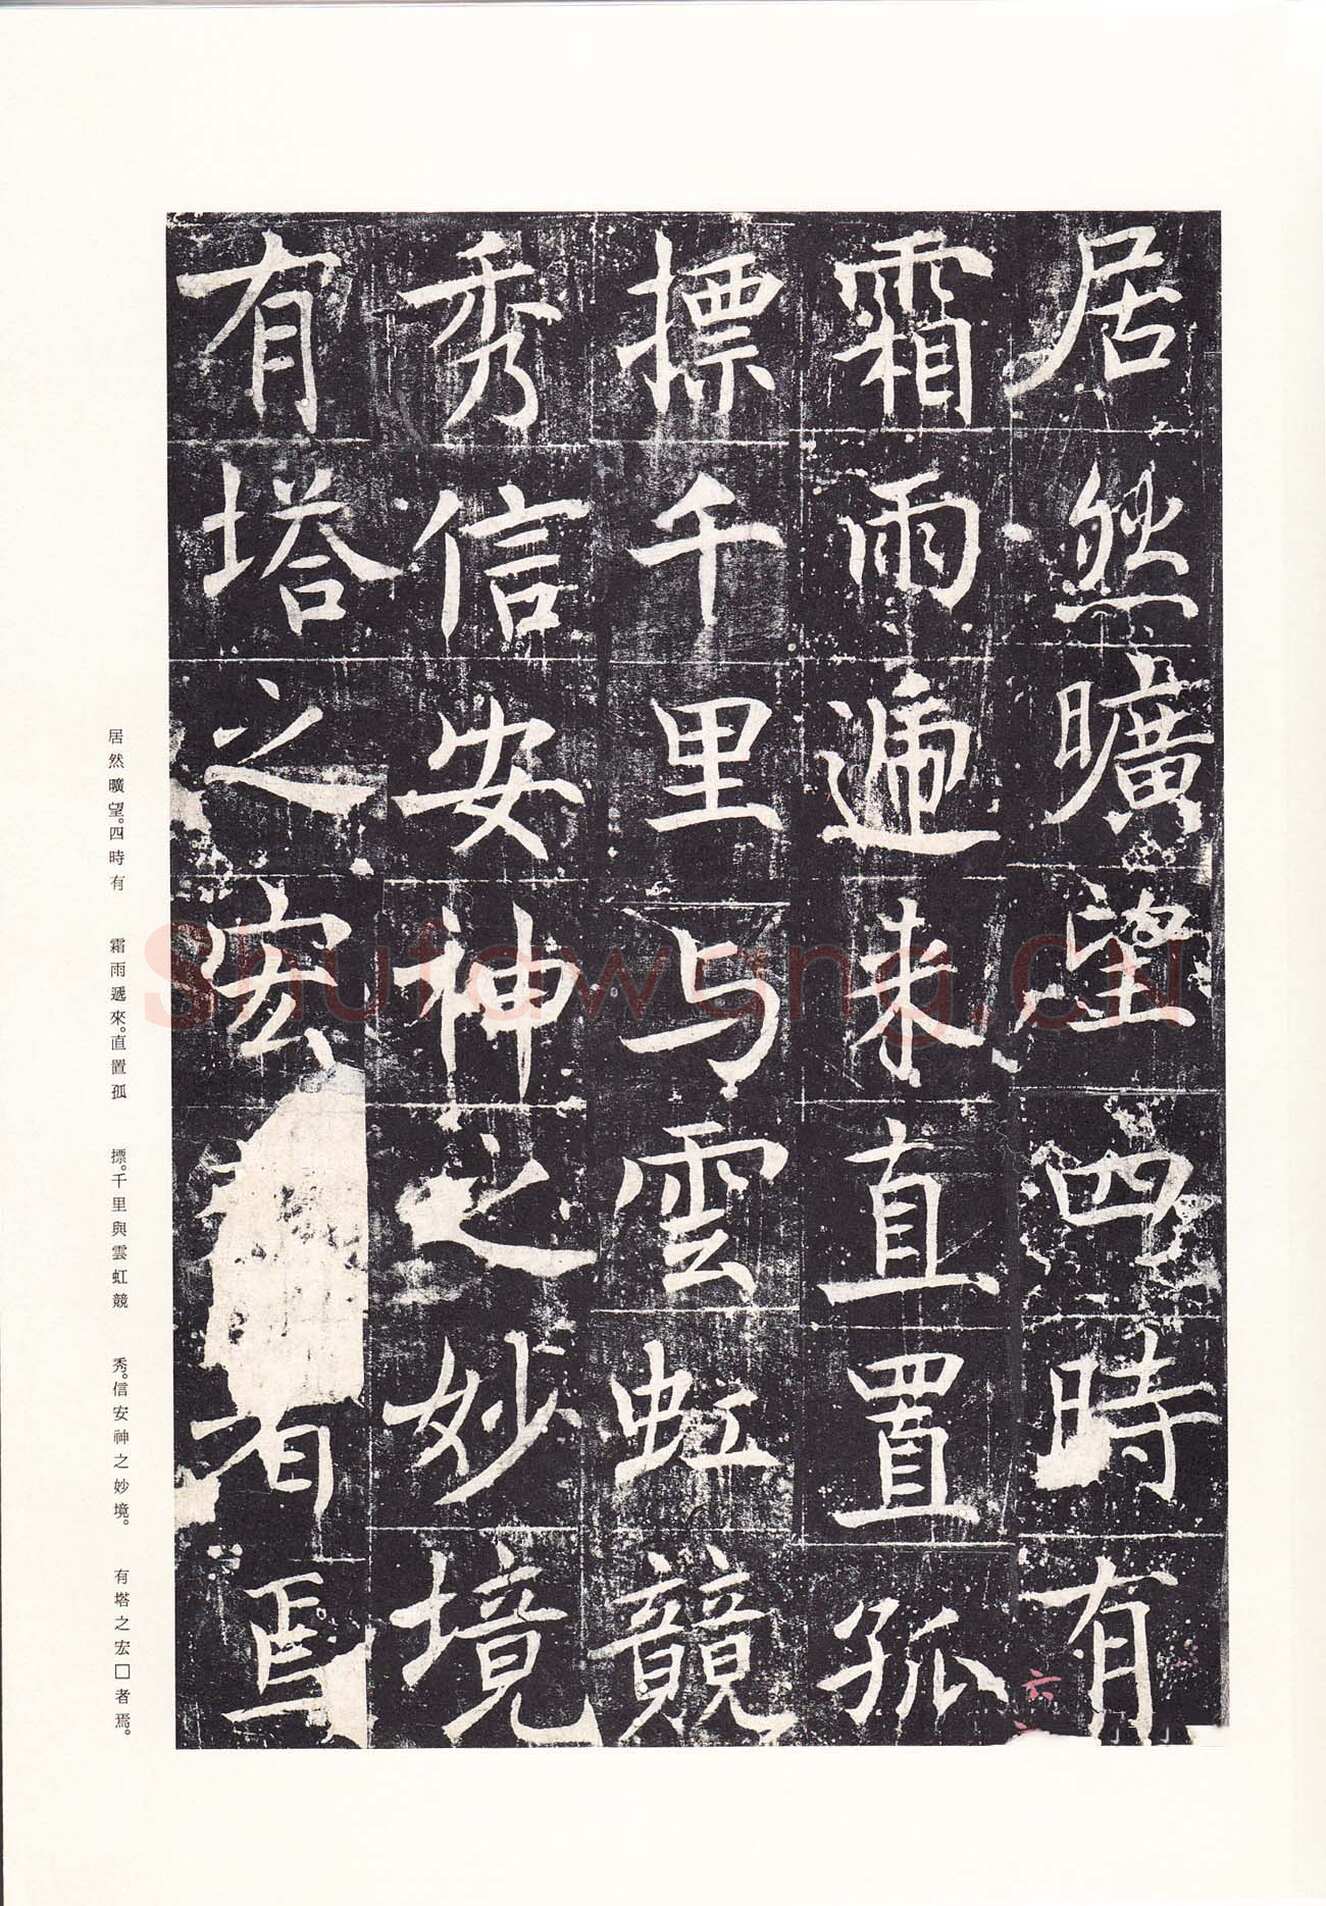 居然曠望四時有
霜雨遞来直置孤
摽千里与雲虹競
秀信安神之妙境
有塔之宏者焉
六
居然曠望。四時有
霜雨遞來。直置孤
摽。千里與雲虹競
秀。信安神之妙境。
有塔之宏□者焉。
Shufawang.CN